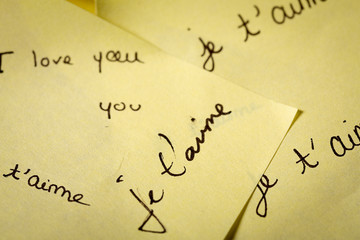 je t'aime
I love you
you
je t'aime
t'aime
je t'aim